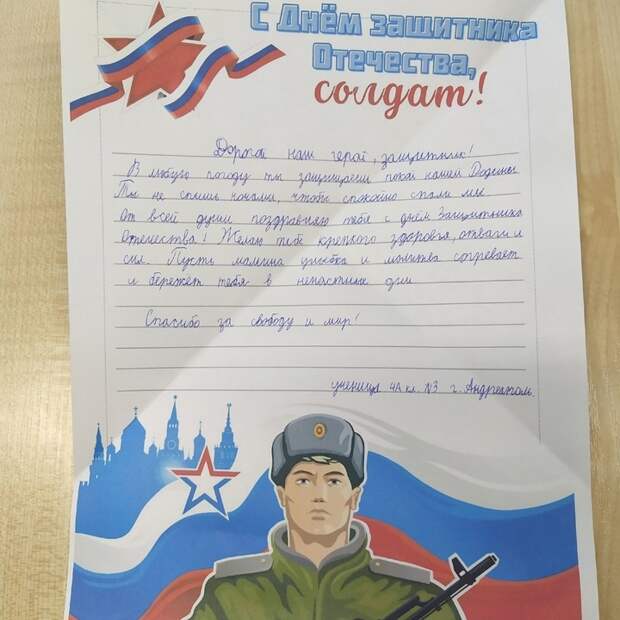 С Днём защитника
Отечества,
солдат!
Дорогой наш герой, защитник!
В любую погоду ты защищаеш покой нашей Родины
Ты не спишь ночами, чтобы спокойно спали мы
От всей души поздравляю тебя с днём Защитника
Отечества! Желаю тебе крепкого здоровья, отваги и
сил. Пусть мамина улыбка и молитва согревает
и бережёт тебя в ненастные дни
Спасибо за свободу и мир!
ученица 4А кл. N3 г. Андреаполь